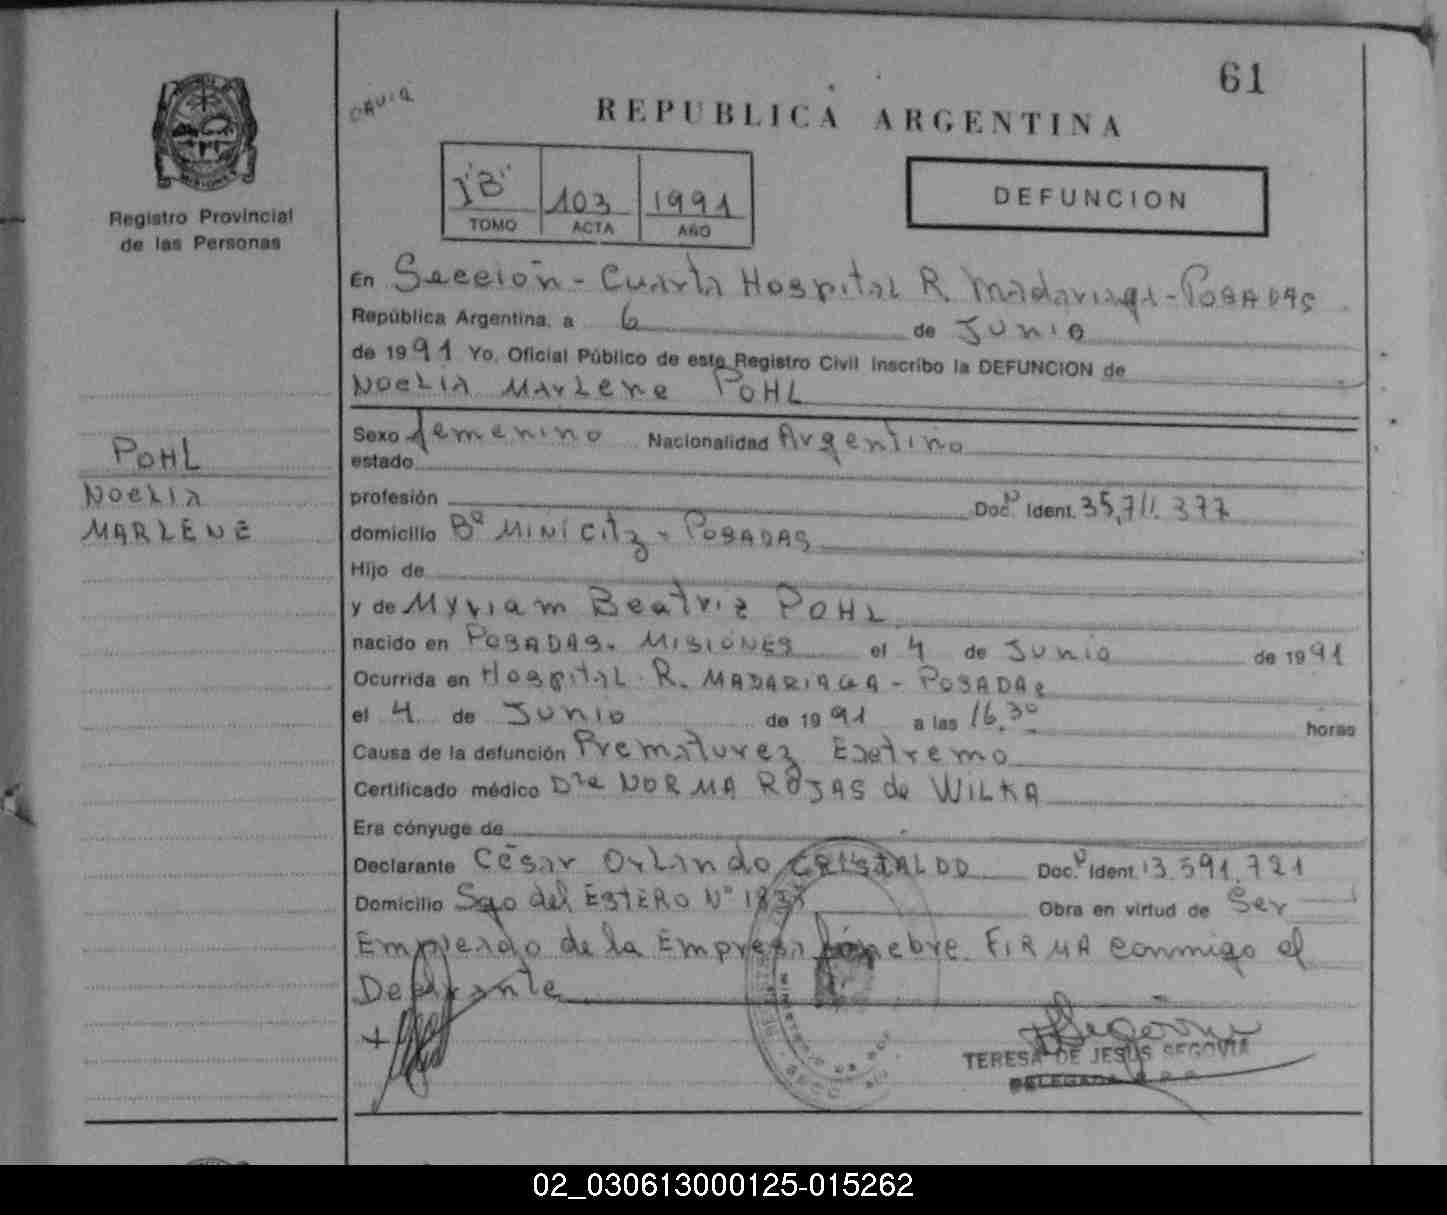 61
REPUBLICA ARGENTINA
Registro Provincial
de las Personas
103 1991
TOMO ACTA AÑO
DEFUNCION
En Sección - Cuarta Hospital R. Madariaga - POSADAS
República Argentina, a 6 de Junio
de 1991 Yo, Oficial Público de este Registro Civil inscribo la DEFUNCION de
NOELIA MARLENE POHL
POHL
NOELIA
MARLENE
Sexo femenino Nacionalidad Argentino
estado
profesión Doc. Ident. 35.711.377
domicilio Bº MINICITY - POSADAS
Hijo de
y de Myriam Beatriz POHL
nacido en POSADAS. MISIONES el 4 de Junio de 1991
Ocurrida en Hospital R. MADARIAGA - POSADAS
el 4 de Junio de 1991 a las 16,30 horas
Causa de la defunción Prematurez Extremo
Certificado médico Dra NORMA ROJAS de WILKA
Era cónyuge de
Declarante César Orlando CRISTALDO Doc. Ident. 13.591.721
Domicilio Sgo del ESTERO Nº 183 Obra en virtud de Ser
Empleado de la Empresa fúnebre. FIRMA conmigo el
Declarante
TERESA DE JESUS SEGOVIA
DELEGADA
02_030613000125-015262